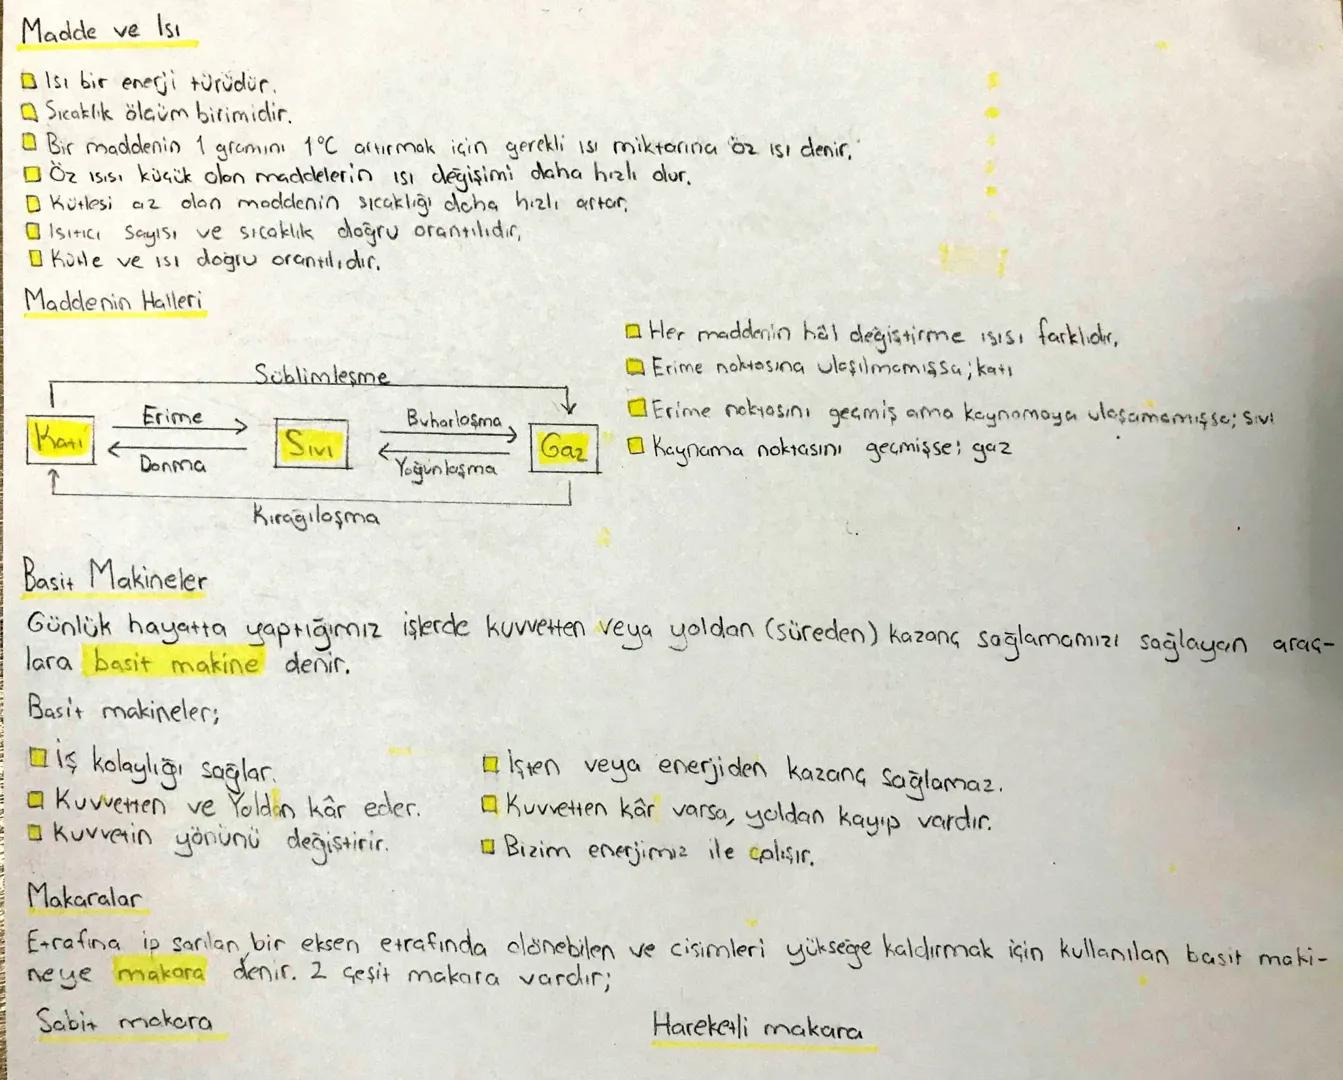 Madde ve Isı
Isı bir enerji türüdür.
Sıcaklık ölçüm birimidir.
Bir maddenin 1 gramını 1°C artırmak için gerekli ısı miktarına öz ısı denir.
Öz ısısı küçük olan maddelerin ısı değişimi daha hızlı olur.
Kütlesi az olan maddenin sıcaklığı daha hızlı artar.
Isıtıcı sayısı ve sıcaklık doğru orantılıdır.
Kütle ve ısı doğru orantılıdır.
Maddenin Halleri
Süblimleşme
Erime
Buharlaşma
Katı
Sıvı
Gaz
Donma
Yoğunlaşma
Kırağılaşma
Her maddenin hâl değiştirme ısısı farklıdır.
Erime noktasına ulaşılmamışsa; katı
Erime noktasını geçmiş ama kaynamaya ulaşamamışsa; sıvı
Kaynama noktasını geçmişse; gaz
Basit Makineler
Günlük hayatta yaptığımız işlerde kuvvetten veya yoldan (süreden) kazanç sağlamamızı sağlayan araç-
lara basit makine denir.
Basit makineler;
İş kolaylığı sağlar.
Kuvvetten ve Yoldan kâr eder.
Kuvvetin yönünü değiştirir.
İşten veya enerjiden kazanç sağlamaz.
Kuvvetten kâr varsa, yoldan kayıp vardır.
Bizim enerjimiz ile çalışır.
Makaralar
Etrafına ip sarılan bir eksen etrafında dönebilen ve cisimleri yükseğe kaldırmak için kullanılan basit maki-
neye makara denir. 2 çeşit makara vardır;
Sabit makara
Hareketli makara